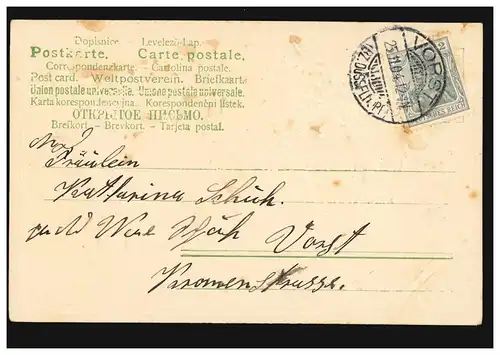 Dopisnice - Levelező-Lap.
Postkarte. Carte postale.
Correspondenzkarte. - Cartolina postale.
Post card. - Weltpostverein. - Briefkaarte
Union postale universelle. - Unione postale universale.
Karta korespondencyjna. - Korespondenční lístek.
ОТКРЫТОЕ ПИСЬМО.
Brefkort. - Brevkort. - Tarjeta postal.
VORST
25.11.04
2
Fräulein
Katharina Schuh.
Vorst
Kronenstrasse.